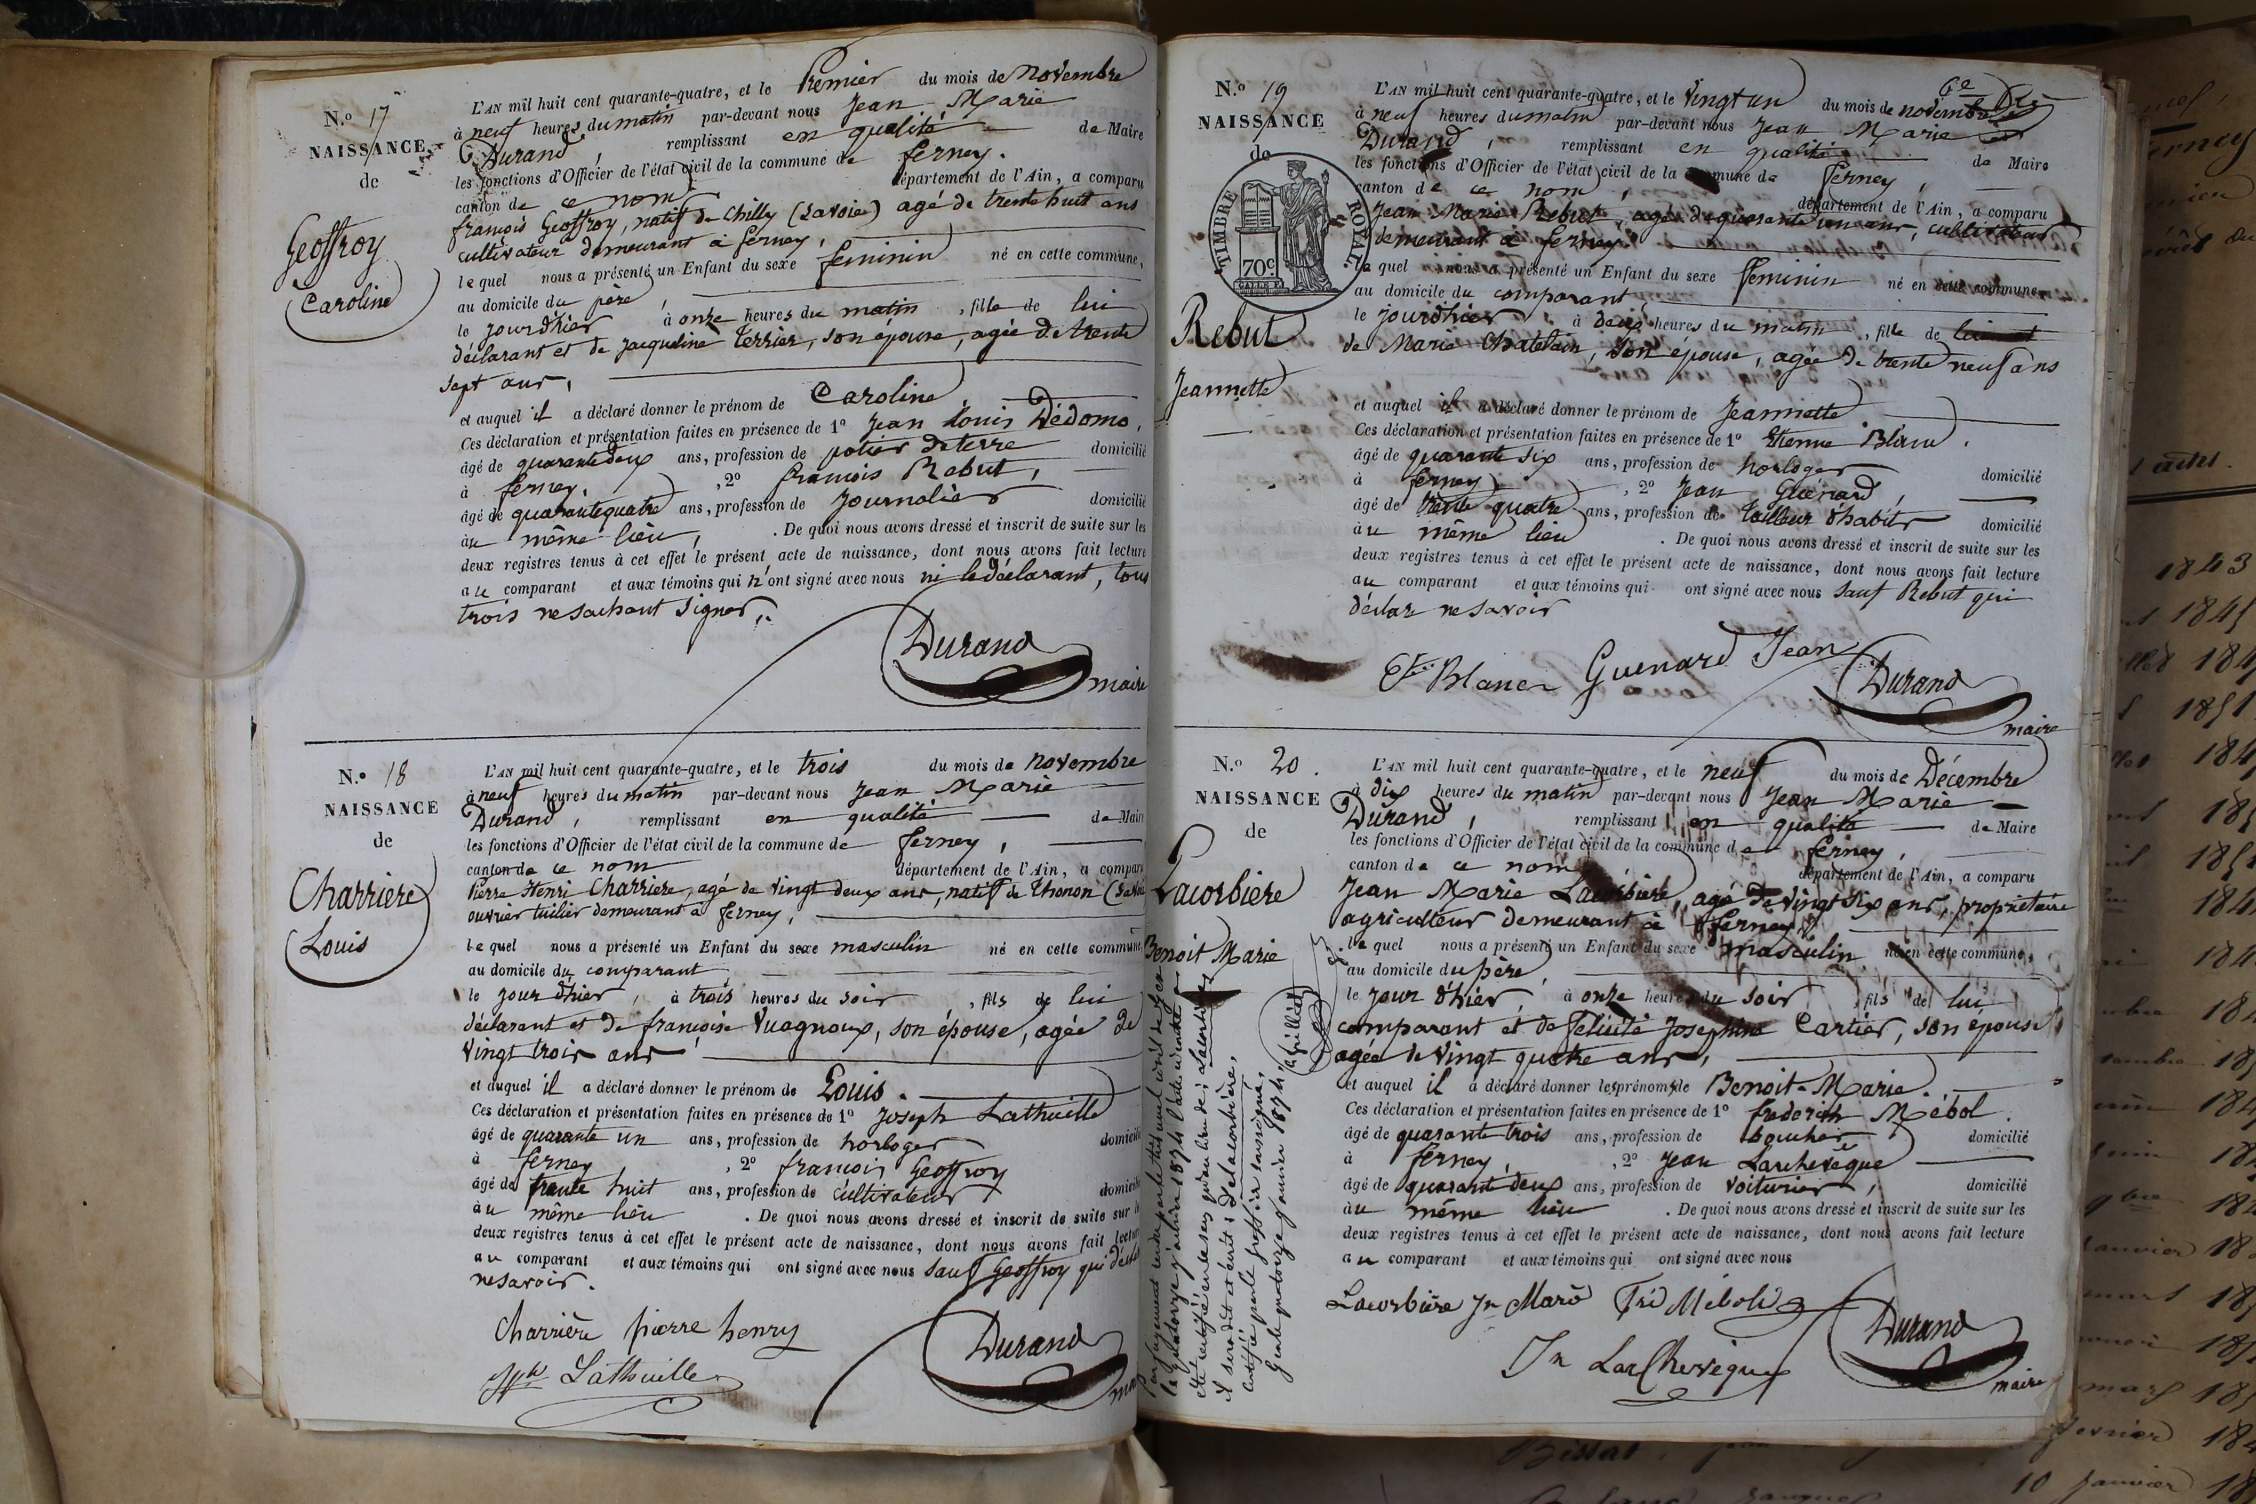 N.o 17
NAISSANCE
de
Geoffroy
Caroline
L'AN mil huit cent quarante-quatre, et le Premier du mois de novembre
à neuf heures du matin par-devant nous Jean Marie
Durand, remplissant en qualité de Maire
les fonctions d'Officier de l'état civil de la commune de ferney.
canton de ce nom département de l'Ain, a comparu
françois Geoffroy, natif de Chilly (Savoie) agé de trente huit ans
cultivateur demeurant à ferney,
lequel nous a présenté un Enfant du sexe feminin né en cette commune,
au domicile du père
le jour d'hier à onze heures du matin, fille de lui
déclarant et de jacqueline Terrier, son épouse, agée de trente
sept ans,
et auquel il a déclaré donner le prénom de Caroline
Ces déclaration et présentation faites en présence de 1o Jean Louis Dédomo,
âgé de quarante deux ans, profession de potier de terre domicilié
à ferney, 2o francois Rebut,
âgé de quarante quatre ans, profession de Journalier domicilié
au même lieu, . De quoi nous avons dressé et inscrit de suite sur les
deux registres tenus à cet effet le présent acte de naissance, dont nous avons fait lecture
au comparant et aux témoins qui n'ont signé avec nous ni le déclarant, tous
trois ne sachant signer.
Durand
maire
N.o 18
NAISSANCE
de
Charriere
Louis
L'AN mil huit cent quarante-quatre, et le trois du mois de novembre
à neuf heures du matin par-devant nous Jean Marie
Durand, remplissant en qualité de Maire
les fonctions d'Officier de l'état civil de la commune de ferney,
canton de ce nom département de l'Ain, a comparu
Pierre Henri Charriere, agé de vingt deux ans, natif de Thonon (Savoie
ouvrier tuilier demeurant à ferney,
lequel nous a présenté un Enfant du sexe masculin né en cette commune
au domicile du comparant
le jour d'hier, à trois heures du soir, fils de lui
déclarant et de françoise Vuagnoux, son épouse, agée de
vingt trois ans
et auquel il a déclaré donner le prénom de Louis.
Ces déclaration et présentation faites en présence de 1o Joseph Lathuille
âgé de quarante un ans, profession de horloger domicilié
à ferney, 2o francois Geoffroy
âgé de trente huit ans, profession de cultivateur domicilié
au même lieu. De quoi nous avons dressé et inscrit de suite sur les
deux registres tenus à cet effet le présent acte de naissance, dont nous avons fait lecture
au comparant et aux témoins qui ont signé avec nous sauf Geoffroy qui déclare
ne savoir.
Charrière pierre henry
Jph Lathuille
Durand
maire
N.o 19
NAISSANCE
de
TIMBRE ROYAL
70c
Rebut
Jeannette
6e
L'AN mil huit cent quarante-quatre, et le vingt un du mois de novembre
à neuf heures du matin par-devant nous Jean Marie
Durand, remplissant en qualité de Maire
les fonctions d'Officier de l'état civil de la commune de ferney,
canton de ce nom, département de l'Ain, a comparu
Jean Marie Rebut, agé de quarante un ans, cultivateur
demeurant à ferney
lequel nous a présenté un Enfant du sexe feminin né en cette commune
au domicile du comparant,
le jour d'hier, à deux heures du matin, fille de lui et
de Marie Chatelain, son épouse, agée de trente neuf ans
et auquel il a déclaré donner le prénom de Jeannette
Ces déclaration et présentation faites en présence de 1o Etienne Blanc.
âgé de quarante six ans, profession de horloger domicilié
à ferney, 2o Jean Guénard,
âgé de trente quatre ans, profession de tailleur d'habits domicilié
au même lieu. De quoi nous avons dressé et inscrit de suite sur les
deux registres tenus à cet effet le présent acte de naissance, dont nous avons fait lecture
au comparant et aux témoins qui ont signé avec nous sauf Rebut qui
déclare ne savoir
Blanc Guenard Jean
Durand
maire
N.o 20.
NAISSANCE
de
Lacorbiere
Benoit Marie
L'AN mil huit cent quarante-quatre, et le neuf du mois de Décembre
à dix heures du matin par-devant nous Jean Marie
Durand, remplissant en qualité de Maire
les fonctions d'Officier de l'état civil de la commune de ferney,
canton de ce nom département de l'Ain, a comparu
Jean Marie Lacorbiere, agé de vingt six ans, propriétaire
agriculteur demeurant à ferney,
lequel nous a présenté un Enfant du sexe masculin né en cette commune,
au domicile du père,
le jour d'hier, à onze heures du soir fils de lui
comparant et de Félicité Josephine Cartier, son épouse
agée de vingt quatre ans,
et auquel il a déclaré donner les prénoms de Benoit-Marie.
Ces déclaration et présentation faites en présence de 1o frederich Mébol.
âgé de quarante trois ans, profession de boucher domicilié
à ferney, 2o Jean Larchevêque
âgé de quarante deux ans, profession de voiturier, domicilié
au même lieu. De quoi nous avons dressé et inscrit de suite sur les
deux registres tenus à cet effet le présent acte de naissance, dont nous avons fait lecture
au comparant et aux témoins qui ont signé avec nous
Lacorbière Jn Marie Fred Mébold
Jn LarChevêque
Durand
maire
Par jugement rendu par le tribunal civil de Gex
le quatorze janvier 1874 l'acte ci contre a
été rectifié en ce sens qu'au lieu de: Lacorbiere
il sera dit et écrit: Delacorbière,
Certifié par le greffier soussigné,
Gex le quatorze janvier 1874,
1843
1845
1851
10 janvier